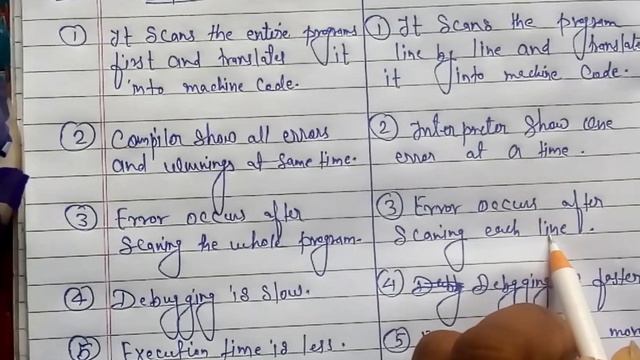 ① It Scans the entire programs
first and translates it
into machine Code.
② Compilor Show all errors
and warnings at Same time.
③ Error occurs after
Scaning the whole program.
④ Debugging is Slow.
⑤ Execution time is less.
① It Scans the program
line by line and translate
it into machine Code.
② Interpretor Show one
error at a time.
③ Error occurs after
Scaning each line.
④ Debgging faster
⑤